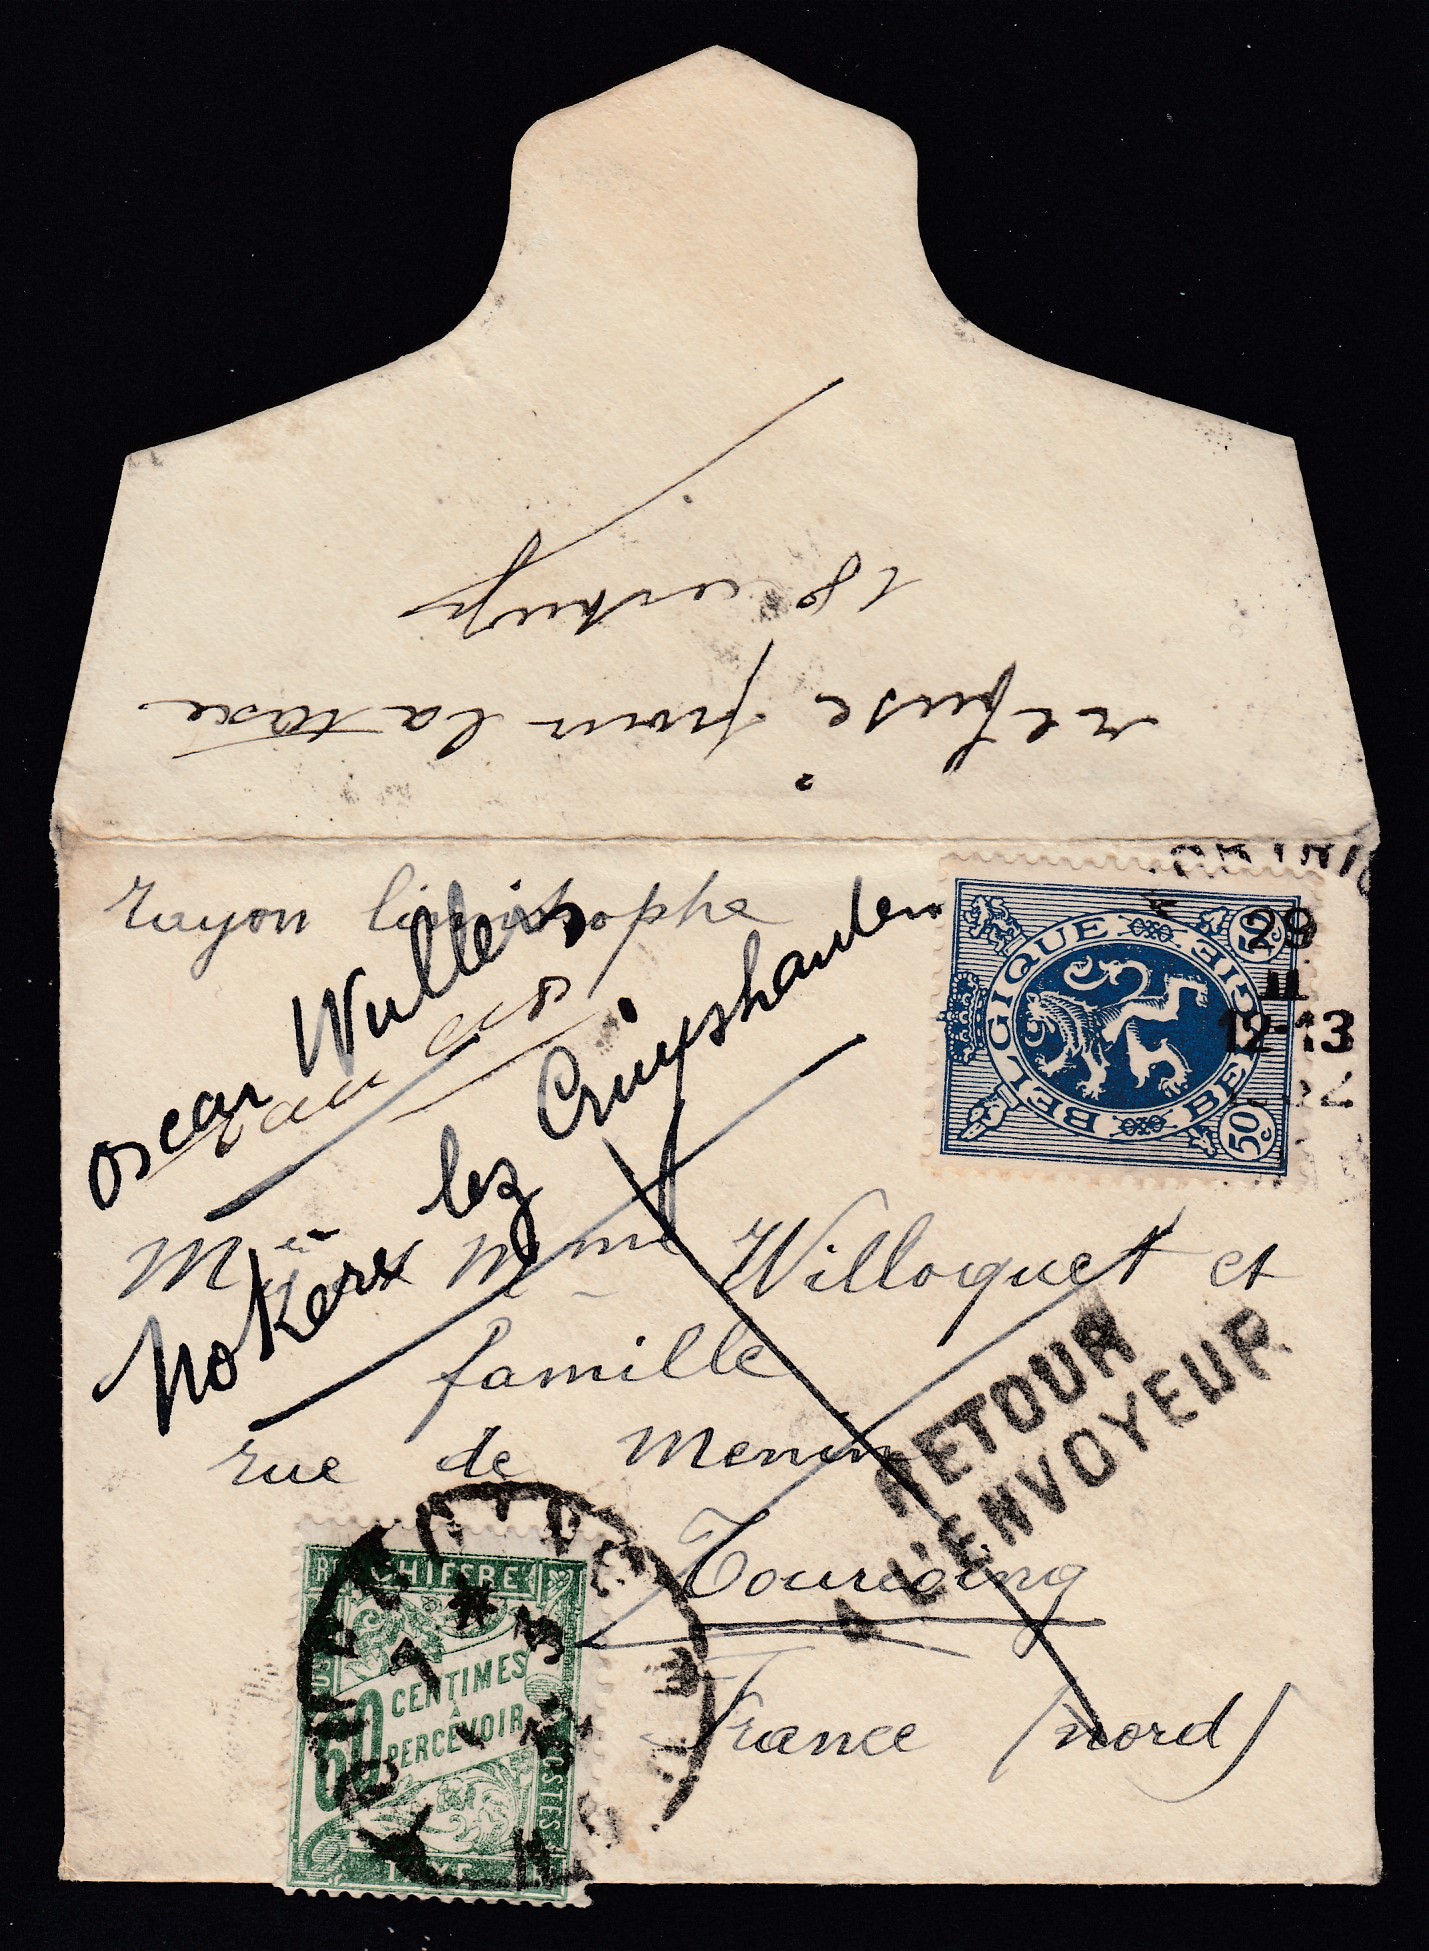 refusé pour la taxe
18
rayon limitrophe
Oscar Wullens
Nokere lez Cruyshautem
29
II
12-13
32
BELGIQUE
BELGIE
50c
50c
Mr et Mme Willoquet et
famille
rue de Menin
Tourcoing
France (nord)
RETOUR
A L'ENVOYEUR
CHIFFRE
60 CENTIMES
À
PERCEVOIR
POSTES
TAXE